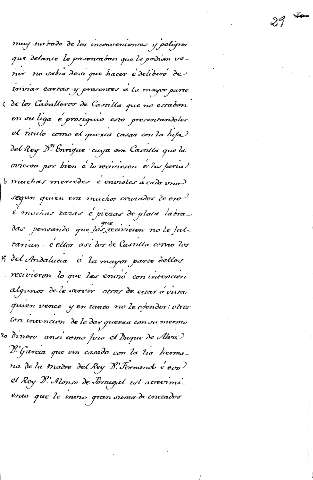 29
muy turbado de los inconvenientes y peligro
que delante le presentaban que le podian ve-
nir no sabia desa que hacer é deliberó de
inviar cartas y presentes á la mayor parte
de los Caballeros de Castilla que no estaban
en su liga é prosiguio esto presentandoles
el titulo como el queria casar con la hija
del Rey Dn. Enrique cuya era Castilla que lo
oviesen por bien é lo reciviesen é les faria
muchas mercedes é envioles á cada uno
segun quien era muchos cruzados de oro
é muchas tazas é piezas de plata labra-
das pensando que los que recivieron no le fal-
tarian é ellos asi los de Castilla como los
del Andalucia ó la mayor parte dellos
recivieron lo que les envió con intencion
algunos de le servir otros de estar á viva
quien vence y en tanto no le ofender: otros
con intencion de le dar guerra con su mesmo
20 dinero ansi como fizo el Duque de Alva
Dn. Garcia que era casado con la tia herma-
na de la Madre del Rey Dn. Fernando é a
el Rey Dn. Alonso de Portugal est
enviado que le envio gran suma de cruzados